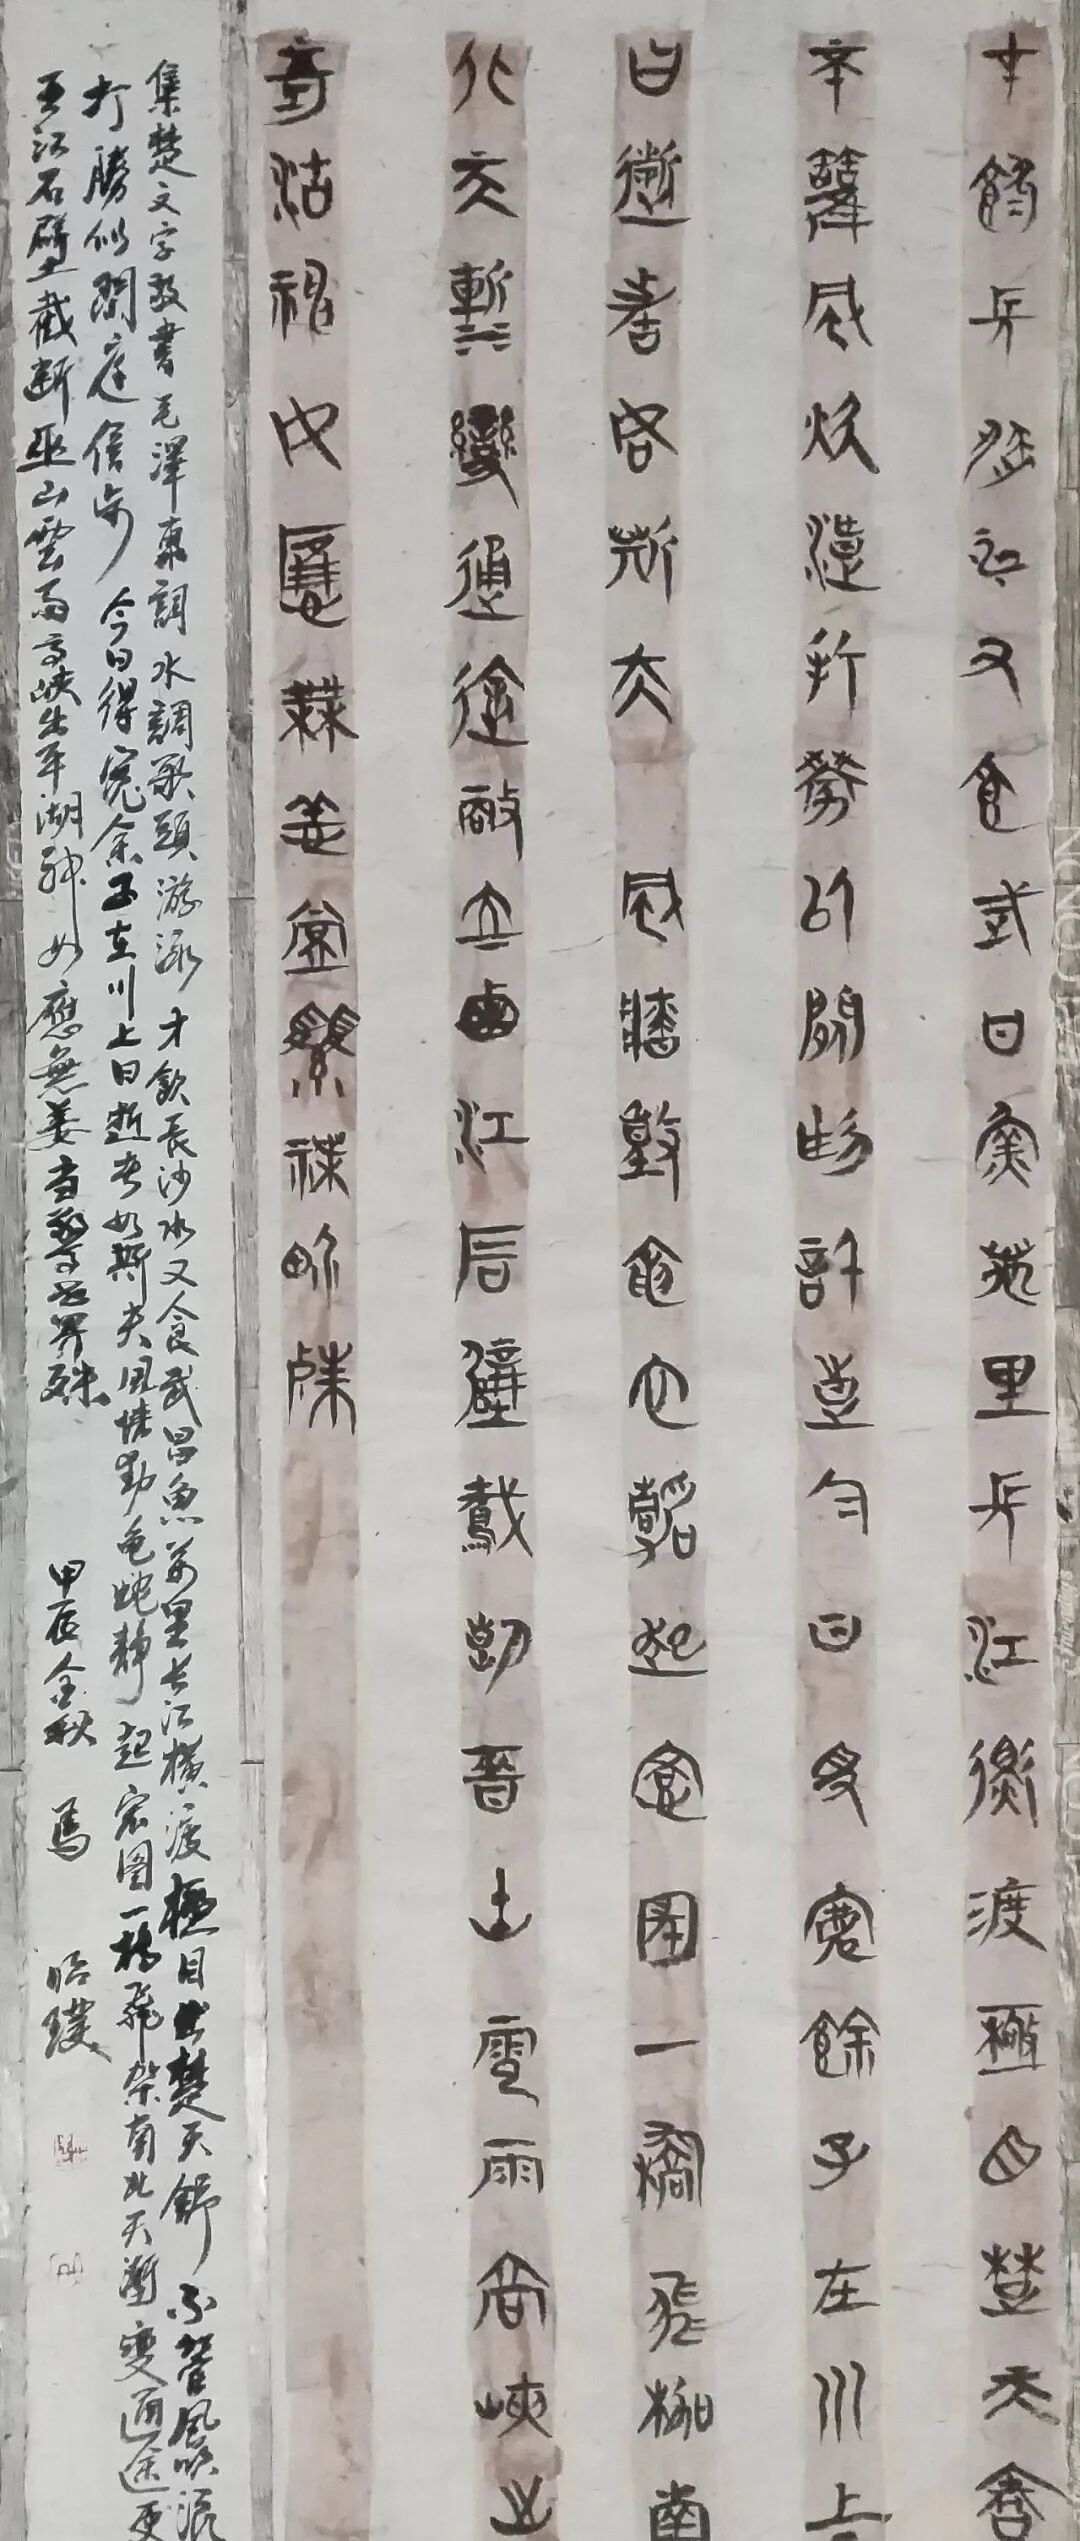 才飲長沙水又食武昌魚萬里長江橫渡極目楚天舒
不管風吹浪打勝似閒庭信步今日得寬餘子在川上
曰逝者如斯夫 風檣動龜蛇靜起宏圖一橋飛架南
北天塹變通途更立西江石壁截斷巫山雲雨高峽出
平湖神女應無恙當驚世界殊
集楚文字敬書毛澤東詞水調歌頭游泳才飲長沙水又食武昌魚萬里長江橫渡極目楚天舒不管風吹浪
打勝似閒庭信步今日得寬余子在川上曰逝者如斯夫風檣動龜蛇靜起宏圖一橋飛架南北天塹變通途更
西江石壁截斷巫山雲雨高峽出平湖神女應無恙當驚世界殊 甲辰金秋 馬昭璞